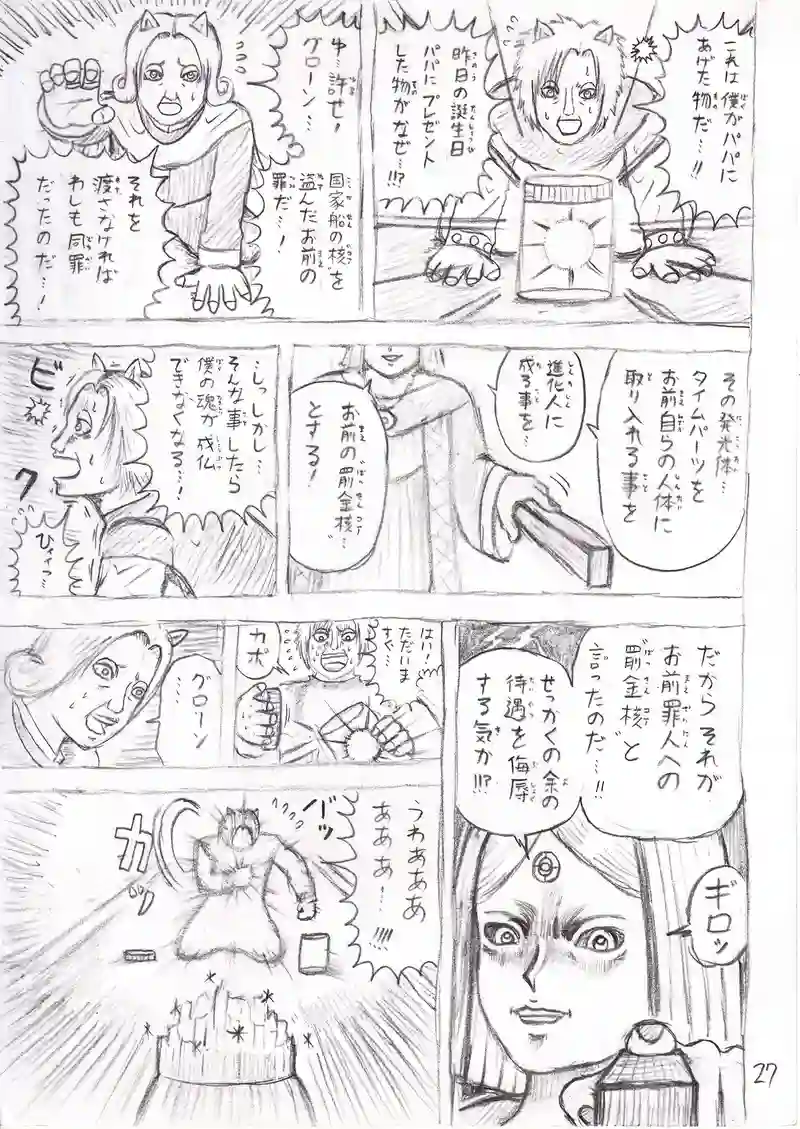 これは僕がパパに
あげた物だ…!!
昨日の誕生日
パパにプレゼント
した物がなぜ…!!?
ゆ…許せ!
グローン…
国家船の核を
盗んだお前の
罪だ…!
それを
渡さなければ
わしも同罪
だったのだ…!
その発光体…
タイムパーツを
お前自らの人体に
取り入れる事を
進化人に
成る事を…
お前の罰金核…
とする!
…しっしかし…
そんな事したら
僕の魂が成仏
できなくなる…!
ビ
ク
ひィィっ…
だからそれが
お前罪人への
罰金核と
言ったのだ…!!
せっかくの余の
待遇を侮辱
する気か!!?
ギロッ
はい!
ただいま
すぐ…
カポ
グローン
…
うわあああ
あああ…!!!
バッ
カッ
27